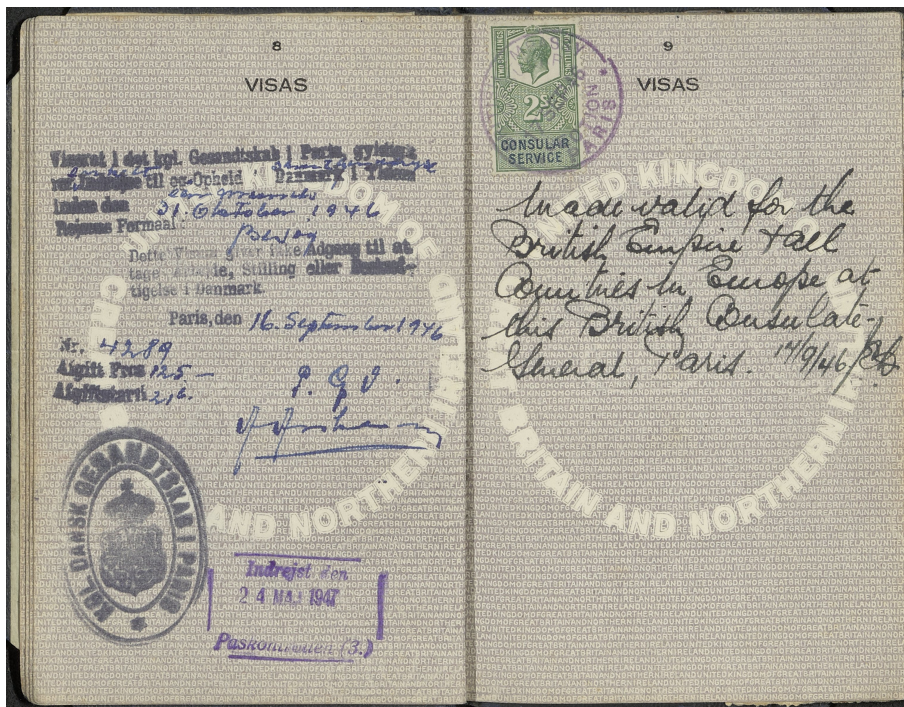 8
VISAS
Viseret i det kgl. Gesandtskab i Paris, gyldigt
Indrejse til og Ophold i Danmark i Tiden
inden den
31. Oktober 1946
Rejsens Formaal: Besøg
Dette Visum giver ikke Adgang til at
tage Arbejde, Stilling eller Beskæf-
tigelse i Danmark.
Paris, den 16. September 1946
Nr. 4289
Afgift Frcs 125 —
Afgiftstarif
KGL. DANSK GESANDTSKAB I PARIS
Indrejst den
24 MAJ 1947
Paskontrollen (3.)
9
VISAS
TWO SHILLINGS
2S
CONSULAR
SERVICE
PARIS
Made valid for the
British Empire & all
Countries in Europe at
this British Consulate-
General, Paris. 17/9/46
UNITED KINGDOM OF GREAT BRITAIN AND NORTHERN IRELAND